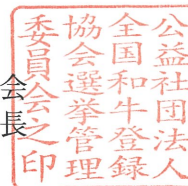 公益社団法人
全国和牛登録
協会選挙管理
委員会之印
会長